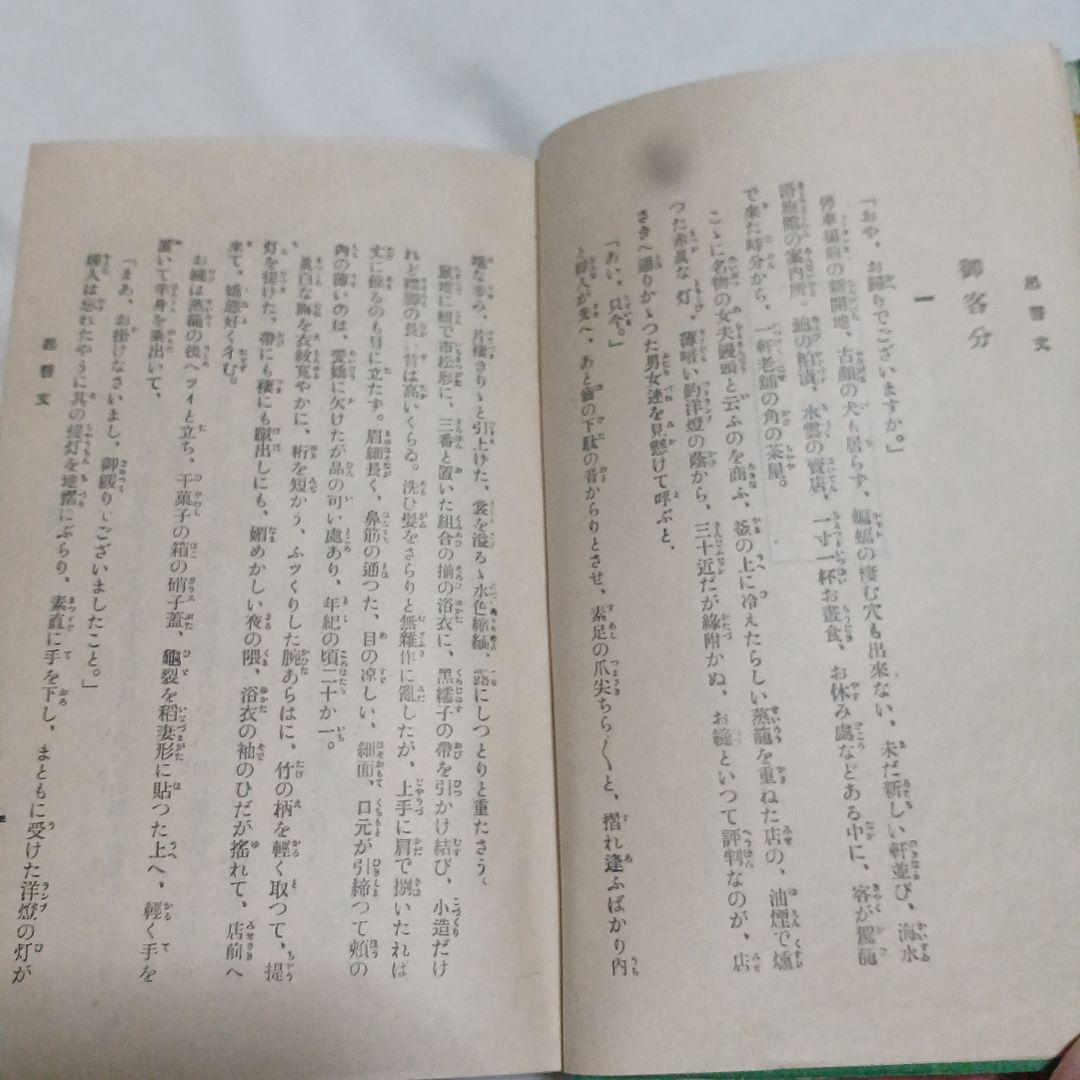 起誓文
御客分
一
「おや、お歸りでございますか。」
停車場前の新開地、古顔の犬も居らず、蝙蝠の棲む穴も出來ない、未だ新しい軒並び、海水
浴旅館の案内所、鮑の粕漬、水雲の賣店、一寸一杯お晝食、お休み處などある中に、客が駕籠
で来た時分から、一軒老舗の角の茶屋。
こゝに名物の女夫饅頭と云ふのを商ふ、釜の上に冷えたらしい蒸籠を重ねた店の、油煙で燻
つた赤眞な灯、薄暗い釣洋燈の蔭から、三十近だが縁附かぬ、お縫といつて評判なのが、店
さきへ通りかゝつた男女達を見懸けて呼ぶと、
「あい、只今。」
と婦人が先へ、あと齒の下駄の音からりとさせ、素足の爪尖ちら／＼と、摺れ逢ふばかり内
端な歩み、片褄きりゝと引上げた、裳を溢るゝ水色縮緬、露にしつとりと重たさう。
藍地に紺で市松形に、三番と置いた組合の揃の浴衣に、黒繻子の帶を引かけ結び、小造だけ
れど褄脚の長い脊は高いくらゐ。洗ひ髪をさらりと無雜作に亂したが、上手に肩で捌いたれば
丈に餘るのも目に立たず。眉細長く、鼻筋の通つた、目の凉しい、細面、口元が引締つて頬の
肉の薄いのは、愛嬌に欠けたが品の可い處あり、年紀の頃二十か一。
眞白な胸を衣紋寬やかに、裄を短かう、ふッくりした腕あらはに、竹の柄を輕く取つて、提
灯を提けた、帶にも褄にも蹴出しにも、媚めかしい夜の隈、浴衣の袖のひだが搖れて、店前へ
来て、嬌態好く彳む。
お縫は蒸籠の後へツイと立ち、干菓子の箱の硝子蓋、龜裂を稻妻形に貼つた上へ、輕く手を
置いて半身を乗出いて、
「まあ、お掛けなさいまし、御緩りとございましたこと。」
婦人は忘れたやうに其の提灯を地摺にぶらり、素直に手を下し、まともに受けた洋燈の灯が
起誓文